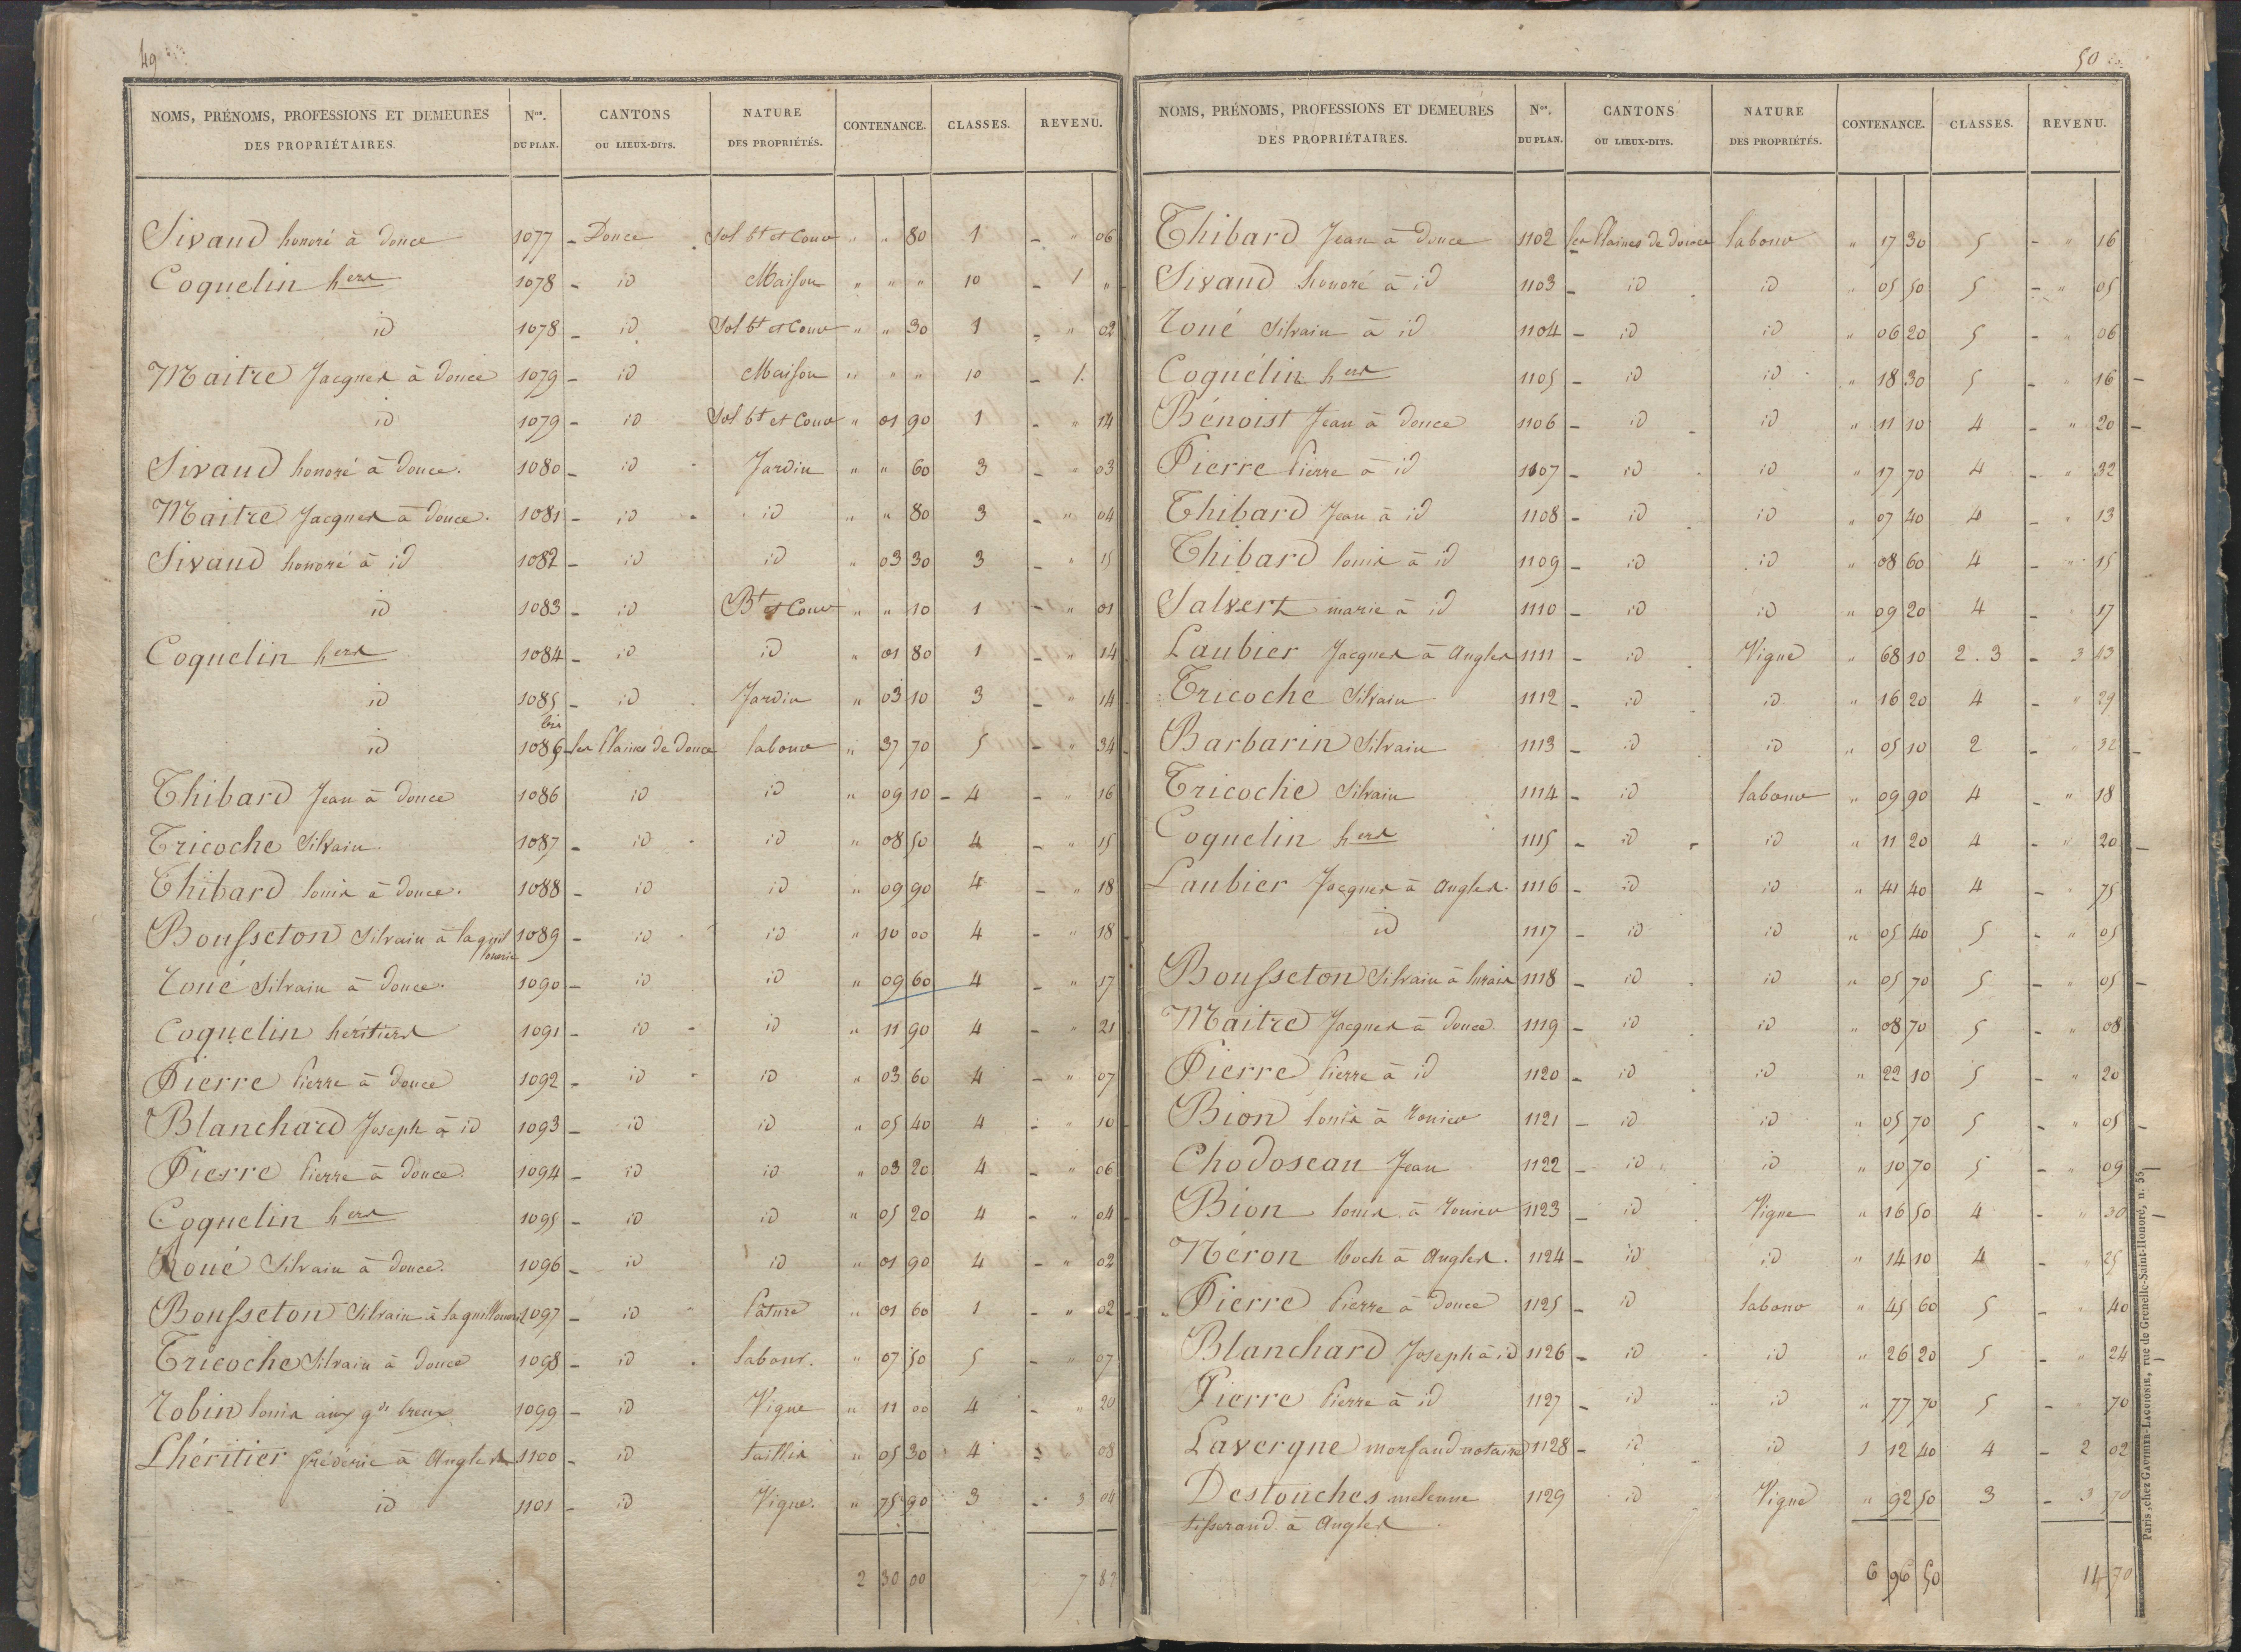 49
NOMS, PRÉNOMS, PROFESSIONS ET DEMEURES DES PROPRIÉTAIRES. Nos. DU PLAN. CANTONS OU LIEUX-DITS. NATURE DES PROPRIÉTÉS. CONTENANCE. CLASSES. REVENU.
Sivaud honoré à douce 1077 - Douce Sol bt et Couv " " 80 1 - " 06
Coquelin hers 1078 - id Maison " " " 10 - 1 "
id 1078 - id Sol bt et Couv " " 30 1 - " 02
Maitre Jacques à douce 1079 - id Maison " " " 10 - 1.
id 1079 - id Sol bt et Couv " 01 90 1 - " 14
Sivaud honoré à douce. 1080 - id Jardin " " 60 3 - " 03
Maitre Jacques à douce. 1081 - id id " " 80 3 - " 04
Sivaud honoré à id 1082 - id id " 03 30 3 - " 15
id 1083 - id Bt et Couv " " 10 1 - " 01
Coquelin hers 1084 - id id " 01 80 1 - " 14
id 1085 - id Jardin " 03 10 3 - " 14
id 1086 bis - les Plaines de douce labour " 37 70 5 - " 34
Thibard Jean à douce 1086 id id " 09 10 - 4 - " 16
Tricoche Silvain. 1087 - id id " 08 50 4 - " 15
Thibard louis à douce. 1088 - id id " 09 90 4 - " 18
Bousseton Silvain à la guillouerie 1089 - id id " 10 00 4 - " 18
Roué Silvain à douce. 1090 - id id " 09 60 4 - " 17
Coquelin héritiers 1091 - id id " 11 90 4 - " 21
Pierre Pierre à douce 1092 - id id " 03 60 4 - " 07
Blanchard Joseph à id 1093 - id id " 05 40 4 - " 10
Pierre Pierre à douce. 1094 - id id " 03 20 4 - " 06
Coquelin hers 1095 - id id " 05 20 4 - " 04
Roué Silvain à douce. 1096 - id id " 01 90 4 - " 02
Bousseton Silvain à la guillouerie 1097 - id Pâture " 01 60 1 - " 02
Tricoche Silvain à douce 1098 - id labour. " 07 50 5 - " 07
Robin louis aux gds breux 1099 - id Vigne " 11 00 4 - " 20
Lhéritier frédéric à Angles 1100 - id taillis " 05 30 4 - 08
id 1101 - id Vigne. " 75 90 3 - 3 04
2 30 00 7 87
50
NOMS, PRÉNOMS, PROFESSIONS ET DEMEURES DES PROPRIÉTAIRES. Nos. DU PLAN. CANTONS OU LIEUX-DITS. NATURE DES PROPRIÉTÉS. CONTENANCE. CLASSES. REVENU.
Thibard Jean à douce 1102 les Plaines de douce labour " 17 30 5 - " 16
Sivaud honoré à id 1103 - id id " 05 50 5 - " 05
Roué Silvain à id 1104 - id id " 06 20 5 - " 06
Coquelin hers 1105 - id id " 18 30 5 - " 16
Bénoist Jean à douce 1106 - id id " 11 10 4 - " 20
Pierre Pierre à id 1107 - id id " 17 70 4 - " 32
Thibard Jean à id 1108 - id id " 07 40 4 - " 13
Thibard louis à id 1109 - id id " 08 60 4 - " 15
Salvert marie à id 1110 - id id " 09 20 4 - 17
Laubier Jacques à Angles 1111 - id Vigne " 68 10 2.3 - 3 43
Tricoche Silvain 1112 - id id " 16 20 4 - " 29
Barbarin Silvain 1113 - id id " 05 10 2 - " 32
Tricoche Silvain 1114 - id labour " 09 90 4 - " 18
Coquelin hers 1115 - id id " 11 20 4 - " 20
Laubier Jacques à Angles. 1116 - id id " 41 40 4 - " 75
id 1117 - id id " 05 40 5 - " 05
Bousseton Silvain à lurais 1118 - id id " 05 70 5 - " 05
Maitre Jacques à douce. 1119 - id id " 08 70 5 - " 08
Pierre Pierre à id 1120 - id id " 22 10 5 - " 20
Bion louis à 1121 - id id " 05 70 5 - " 05
Chodoseau Jean 1122 - id id " 10 70 5 - " 09
Bion louis à 1123 - id Vigne " 16 50 4 - " 30
Néron Roch à Angles. 1124 - id id " 14 10 4 - " 25
Pierre Pierre à douce 1125 - id labour " 45 60 5 - " 40
Blanchard Joseph à id 1126 - id id " 26 20 5 - " 24
Pierre Pierre à id 1127 - id id " 77 70 5 - " 70
Lavergne morsaud notaire 1128 - id id 1 12 40 4 - 2 02
Destouches 1129 id Vigne " 92 50 3 - 3 70
tisserand à Angles
6 96 50 14 70
Paris, chez GAUTHIER-LAGUIONIE, rue de Grenelle-Saint-Honoré, n. 55.